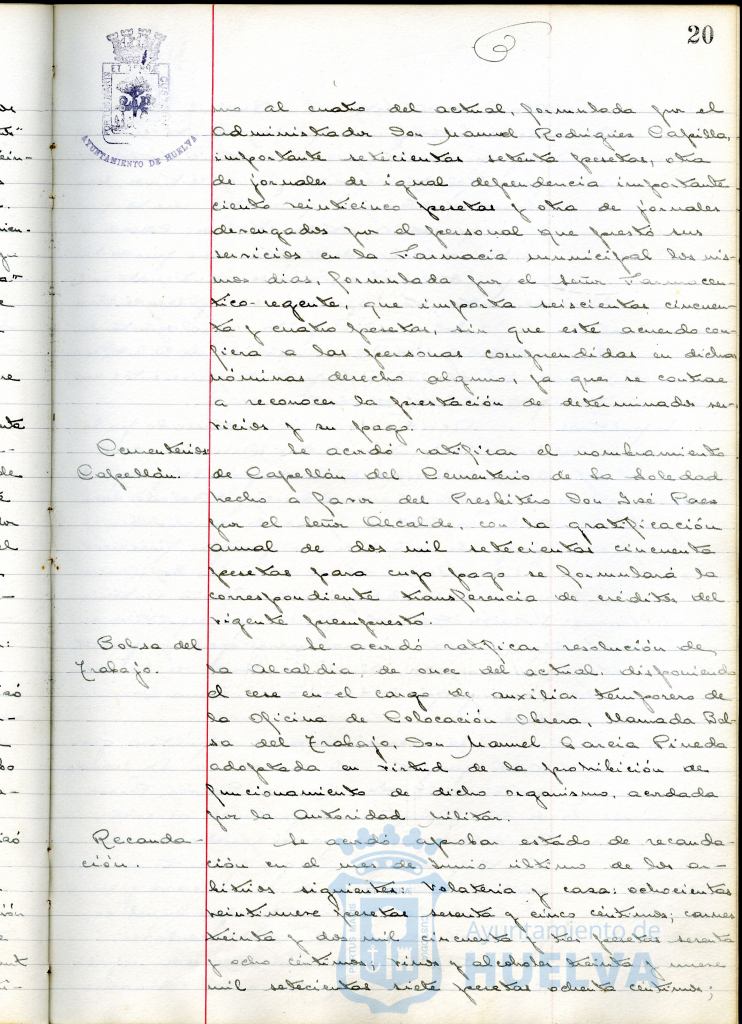 20
AYUNTAMIENTO DE HUELVA
mo al cuatro del actual, formulada por el
Administrador Don Manuel Rodriguez Capilla,
importante setecientas setenta pesetas, otra
de jornales de igual dependencia importante
ciento veinticinco pesetas y otra de jornales
devengados por el personal que prestó sus
servicios en la Farmacia municipal los mis-
mos dias, formulada por el Señor Farmaceu-
tico-regente, que importa seiscientas cincuen-
ta y cuatro pesetas, sin que este acuerdo con-
fiera a las personas comprendidas en dichas
nóminas derecho alguno, ya que se contrae
a reconocer la prestación de determinados ser-
vicios y su pago.
Cementerios
Capellán.
Se acordó ratificar el nombramiento
de Capellán del Cementerio de La Soledad
hecho a favor del Presbitero Don José Paes
por el Señor Alcalde, con la gratificación
anual de dos mil setecientas cincuenta
pesetas para cuyo pago se formulará la
correspondiente transferencia de créditos del
vigente presupuesto.
Bolsa del
Trabajo.
Se acordó ratificar resolución de
la Alcaldia, de once del actual, disponiendo
el cese en el cargo de auxiliar temporero de
la Oficina de Colocación Obrera, llamada Bol-
sa del Trabajo, Don Manuel Garcia Pineda
adoptada en virtud de la prohibición de
funcionamiento de dicho organismo, acordada
por la Autoridad Militar.
Recauda-
ción.
Se acordó aprobar estado de recauda-
ción en el mes de Junio último de los ar-
bitrios siguientes: Volateria y casa: ochocientas
veintinueve pesetas sesenta y cinco céntimos; carnes
treinta y dos mil cincuenta y tres pesetas sesenta
y ocho céntimos; vinos y alcoholes treinta y nueve
mil setecientas siete pesetas ochenta céntimos;
Ayuntamiento de
HUELVA